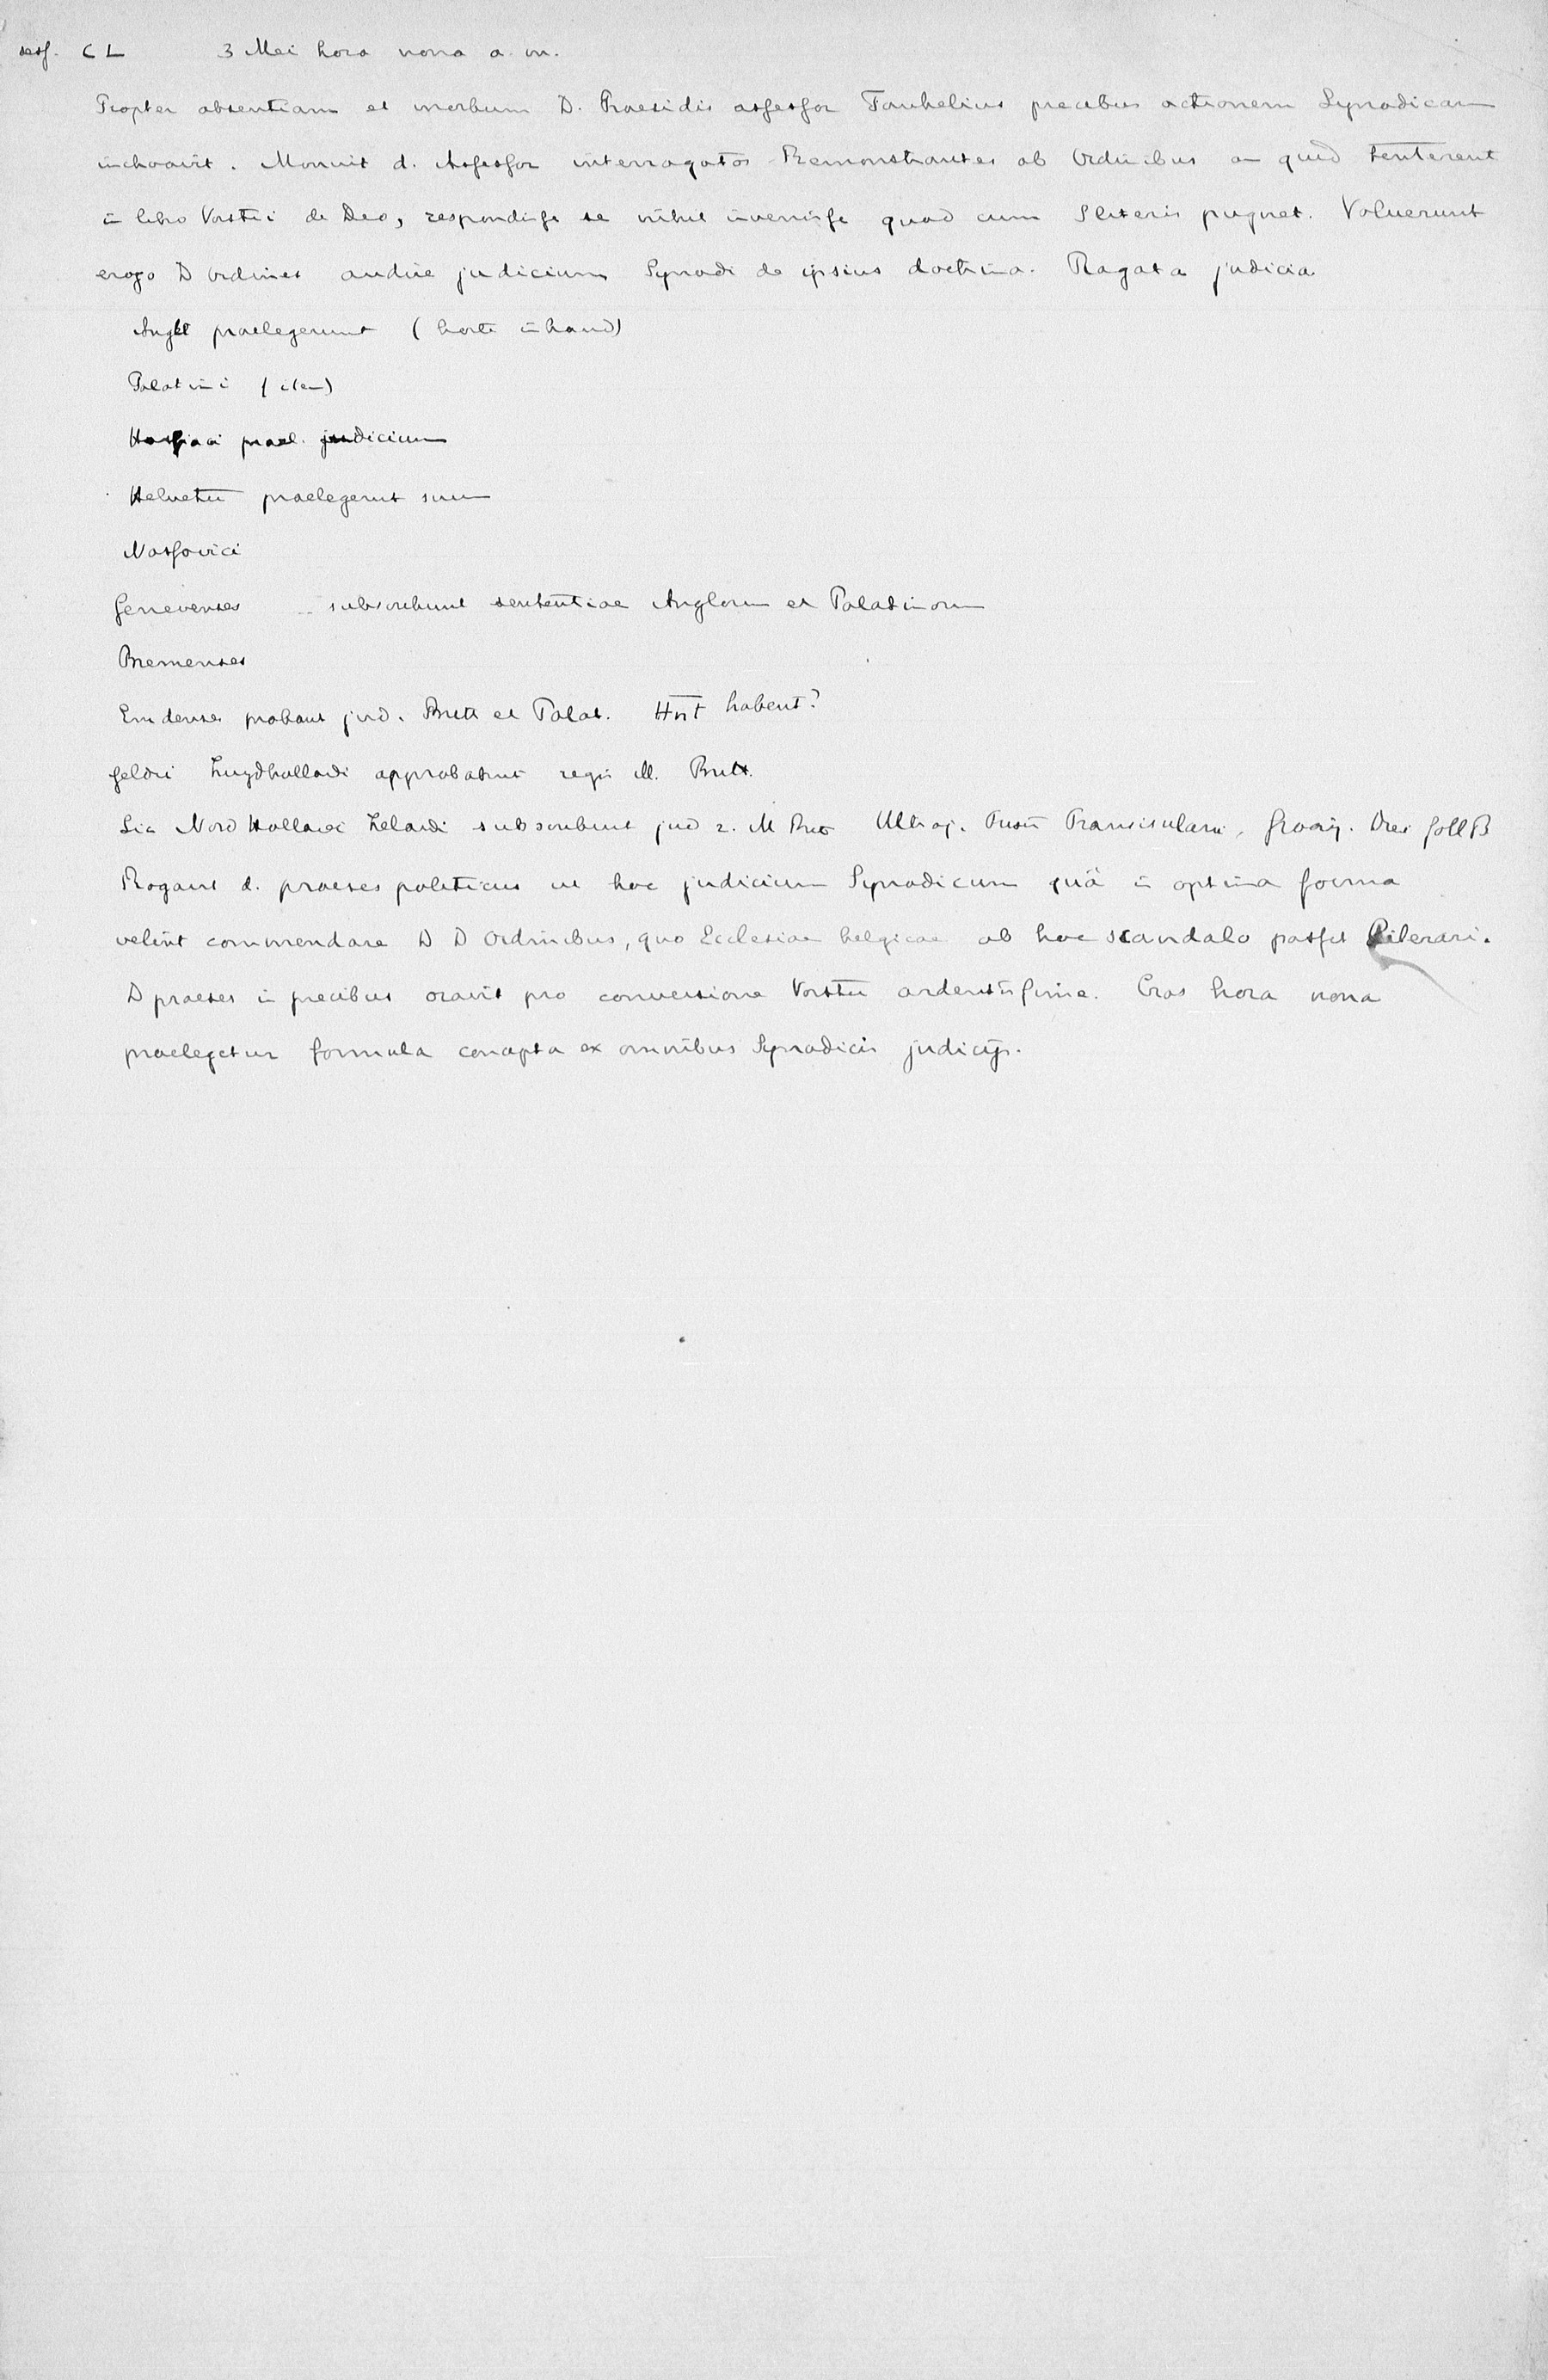 sess. CL 3 Mei hora nona a. m.
Propter absentiam et morbum D. Praesidis assessor Faukelius precibus actionem Synodicam
inchoavit. Monuit d. Assessor interrogatos Remonstrantes ab Ordinibus an quid
in libro Vorstii de Deo, respondisse se nihil invenisse quod cum S literis pugnet. Voluerunt
ergo D Ordines audire judicium Synodi de ipsius doctrina. Rogata judicia
Angli praelegerunt (
Palatini (item)
Hassiaci prael. judicium
Helvetii praelegerunt suum
Nassovici
Genevenses subscribunt sententiae Anglorum et Palatinorum
Bremenses
Emdenses probant jud. Britt et Palat. habent?
Geldri Zuydhollandi approbabunt regis M. Britt.
Sic Nord Hollandi Zelandi subscribunt jud r. M Brit Ultraj. Frisii Transisulani, Groning.
Rogant d. praeses politicus ut hoc judicium Synodicum quâ in optima forma
velint commendare D D Ordinibus, quo Ecclesiae belgicae ab hoc scandalo possit liberari.
D praeses in precibus oravit pro conversione Vorstii ardentissime. Cras hora nona
praelegetur formula concepta ex omnibus Synodicis judicijs.